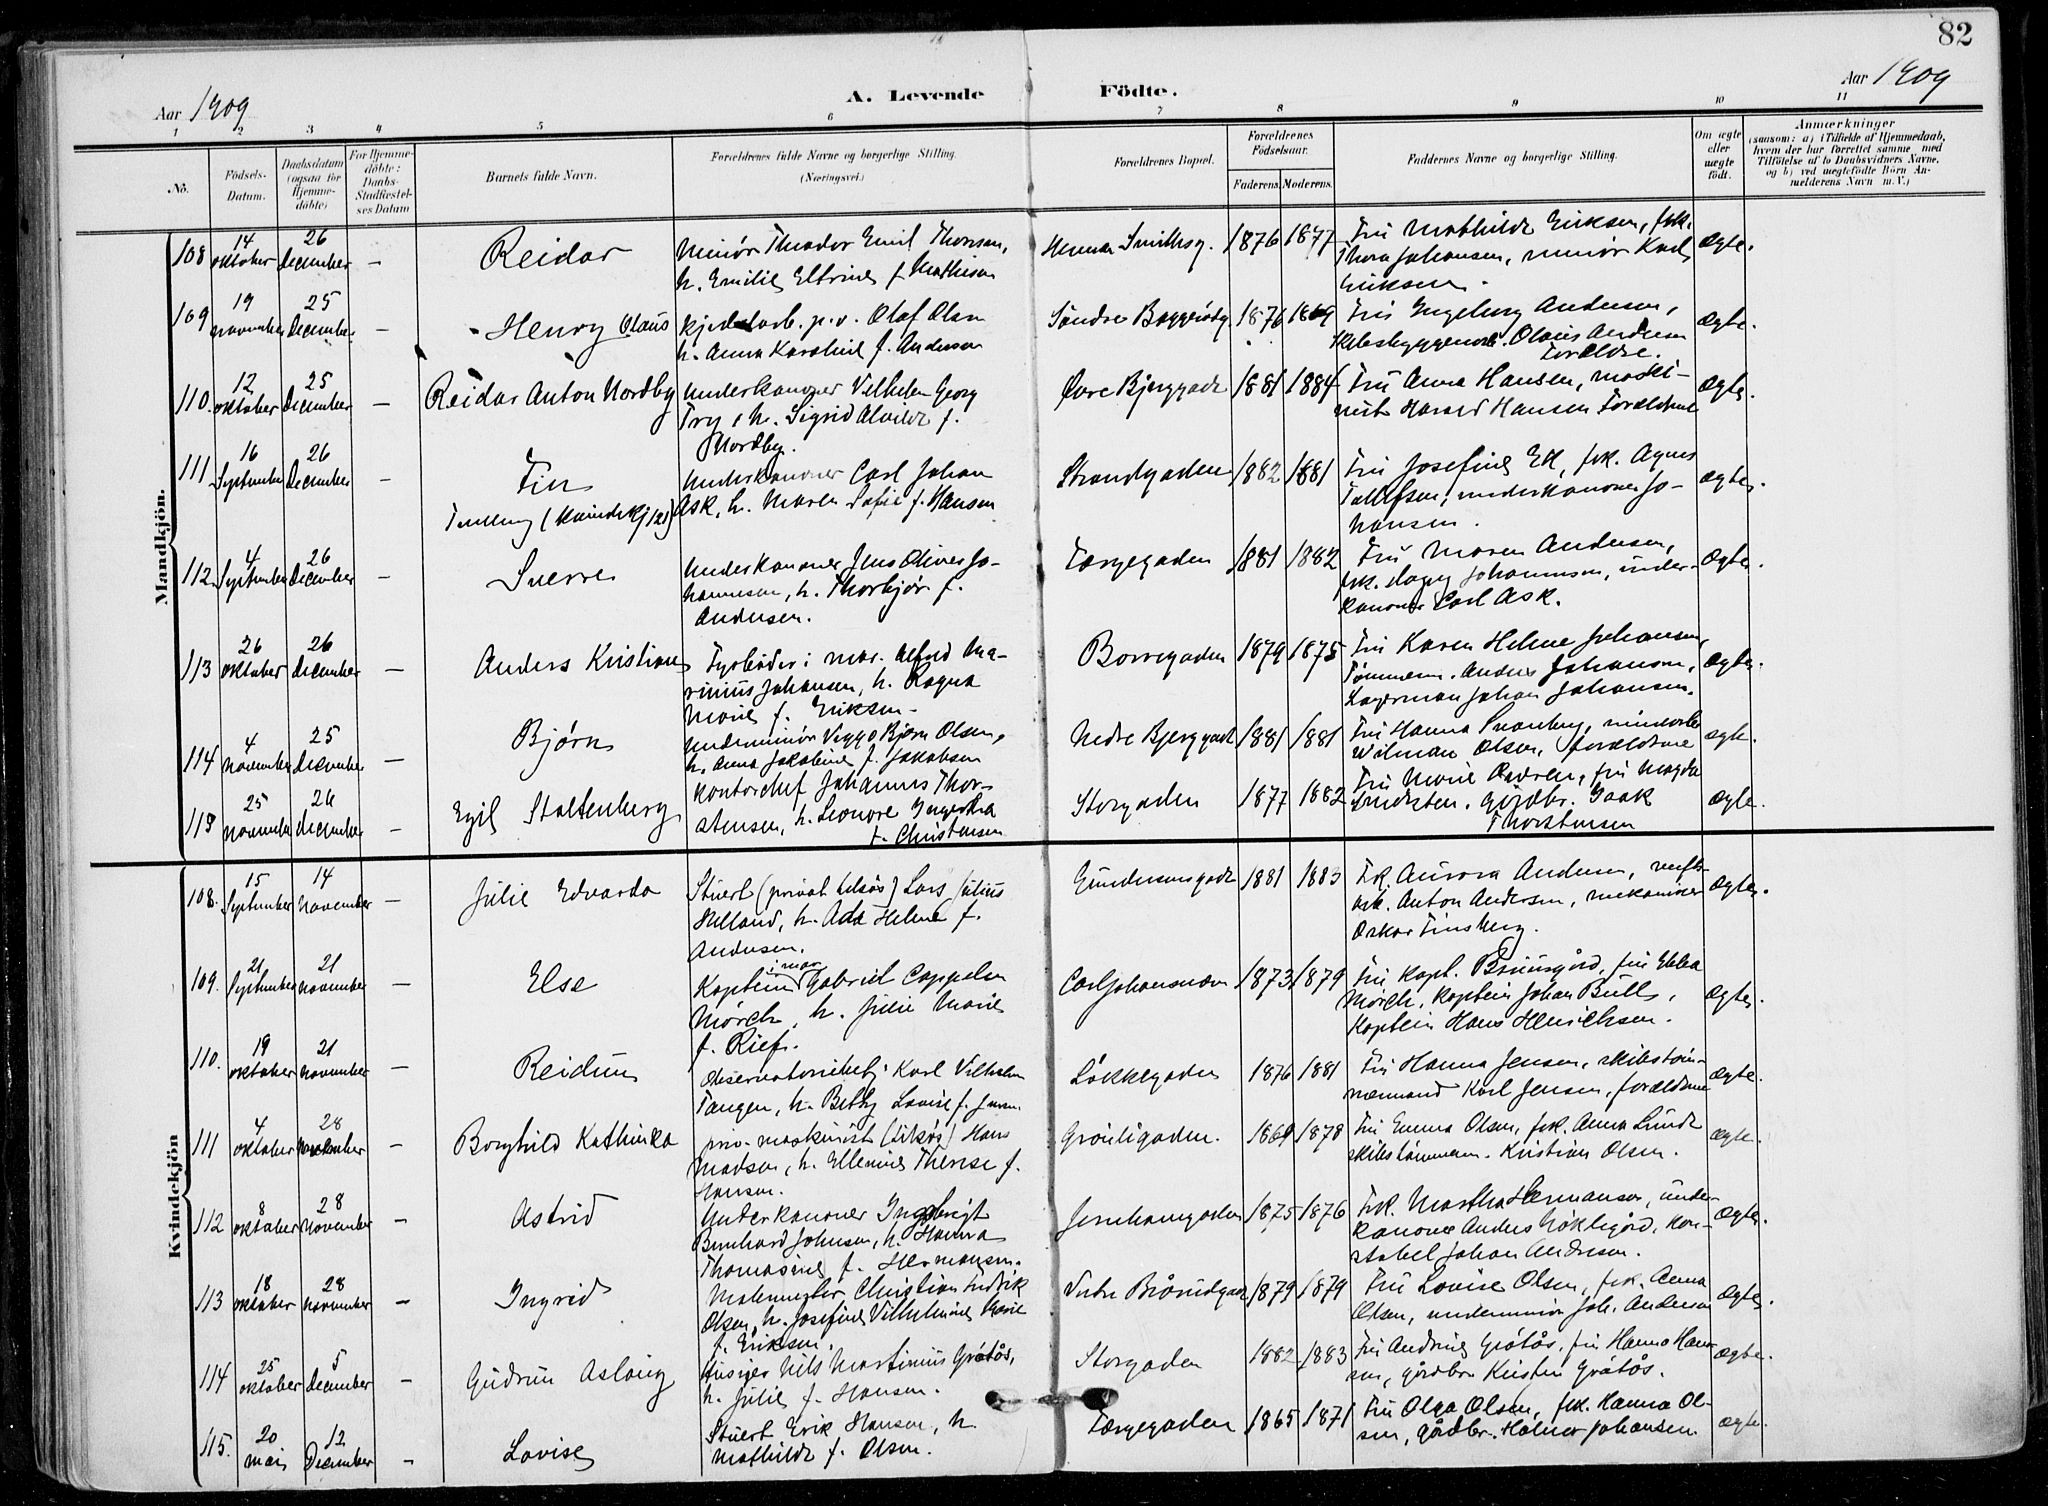 82
Aar 1909
A. Levende Födte.
Aar 1909
1 2 3 4 5 6 7 8 9 10 11
No.
Födsels-Datum.
Daabsdatum (ogsaa for Hjemme-döbte)
For Hjemme-döbte: Daabs-Stadfæstel-ses Datum
Barnets fulde Navn.
Forældrenes fulde Navne og borgerlige Stilling. (Næringsvei.)
Forældrenes Bopæl.
Forældrenes Födselsaar.
Faderens. Moderens.
Faddernes Navne og borgerlige Stilling.
Om ægte eller uægte födt.
Anmærkninger
(saasom: a) i Tilfælde af Hjemmedaab, hvem der har forrettet samme med Tilföielse af to Daabsvidners Navne, og b) ved uægtefödte Börn An-melderens Navn m. V.)
Mandkjön.
108 14 oktober 26 December — Reidar
Minør Theodor Emil Thoresen,
h. Emilie Eltrine f. Mathisen
Herman Smithsg. 1876 1877
Fru Mathilde Eriksen, frk.
Thora Johansen, minør Karl
Eriksen. Ægte.
109 19 november 25 December — Henry Olaus
Kjedelarb. p.v. Olaf Olsen
h. Anna Karoline f. Andersen
Søndre 1876 1869
Fru Ingeborg Andersen,
Olaus Andersen
Forældre. Ægte.
110. 12 oktober 25 December — Reidar Anton Nordby
Underkanoner Vilhelm Georg
Try, h. Sigrid Alvilde f.
Nordby.
Øvre Bjerggade 1881 1884
Fru Anna Hansen, maski-
nist Harald Hansen Forældrene Ægte.
111 16 September 26 December — Finn
Tvilling (Kvindekj 121)
Underkanoner Carl Johan
Ask, h. Maren Sofie f. Hansen
Strandgaden 1882 1881
Fru Josefine Ek, frk. Agnes
Tollefsen, underkanoner Jo-
hansen. Ægte.
112. 4 September 26 December — Sverre
Underkanoner Jens Oliver Jo-
hannesen, h. Thorbjør f.
Andersen.
Færgegaden 1881 1882
Fru Maren Andersen,
frk. Johannesen, under-
kanoner Carl Ask. Ægte.
113 26 oktober 26 december — Anders Kristian
Fyrbøder i mar. Alfred Ma-
rinius Johansen, h. Ragna
Marie f. Eriksen.
Borregaden 1879 1875
Fru Karen Helene Johansen,
Tømmerm. Anders Johansen,
Lagerman Johan Johansen. Ægte.
114 4 november 25 december — Bjørn
Underminør Viggo Bjørn Olsen,
h. Anna Jakobine f. Jakobsen
Nedre Bjerggade 1881 1881
Fru Hanna Svanberg,
Wilman Olsen, forældrene ægte.
115 25 november 26 december — Egil Stoltenberg
Kontorchef Johannes Thor-
stensen, h. Leonore Ingeb
f. Christensen
Storgaden 1877 1882
Fru Marie fru Magda
gårdbr. Isak
Thorstensen Ægte.
Kvindekjön
108. 15 September 14 november — Julie Edvarda
Stuert (privat tilsøs) Lars Julius
Helland, h. Ada Helene f.
Andersen.
Gundersensgade 1881 1883
Frk. Aurora Andersen, verfts-
arb. Anton Andersen, mekaniker
Oskar Finsberg. Ægte.
109. 21 September 21 november — Else
Kaptein i mar. Gabriel Cappelen
Mørch, h. Julie Marie
f. Riefe.
Carljohansværn 1873 1879
Fru Kapt. Bruusgård, fru Ebba
Mørch, Kaptein Johan Bull,
Kaptein Hans Henrichsen. Ægte.
110. 19 oktober 21 november — Reidun
Observatoriebetj. Karl Vilhelm
Tangen, h. Betty Lovise f. Jensen.
Løkkegaden 1876 1881
Fru Hanna Jensen, skibstøm-
mermand Karl Jensen, forældrene ægte.
111 4 oktober 28 november — Borghild Kathinka
priv. maskinist (tilsøs) Hans
Madsen, h. Ellenine Therese f.
Hansen.
Grønligaden. 1869 1878
Fru Emma Olsen, frk. Anna Lunde
skibstømmerm. Kristian Olsen. ægte.
112 8 oktober 28 november — Astrid
Underkanoner Ingebrigt
Bernhard Johnsen, h. Hanna
Thomasine f. Hermansen.
Jernbanegaden 1875 1876
Frk. Martha Hermansen, under-
kanoner Anders Nøklegård, kon-
stabel Johan Andresen. ægte.
113 18 oktober 28 november — Ingrid
Malermester Christian Fredrik
Olsen, h. Josefine Vilhelmine Marie
f. Eriksen.
Vestre Brårudgade 1879 1879
Fru Lovise Olsen, frk. Anna
Olsen, underminør Joh. Andersen Ægte.
114 25 oktober 5 december — Gudrun Aslaug
Husejer Nils Martinius Gråtås,
h. Julie f. Hansen.
Storgaden 1882 1883
Fru Andrine Gråtås, fru Hanna Han-
sen, gårdbr. Kristen Gråtås. ægte.
115. 20 mai 12 December — Lovise
Stuert Erik Hansen, h.
Mathilde f. Olsen.
Færgegaden 1865 1871
Fru Olga Olsen, frk. Hanna Ol-
sen, gårdbr. Halvor Johansen. ægte.